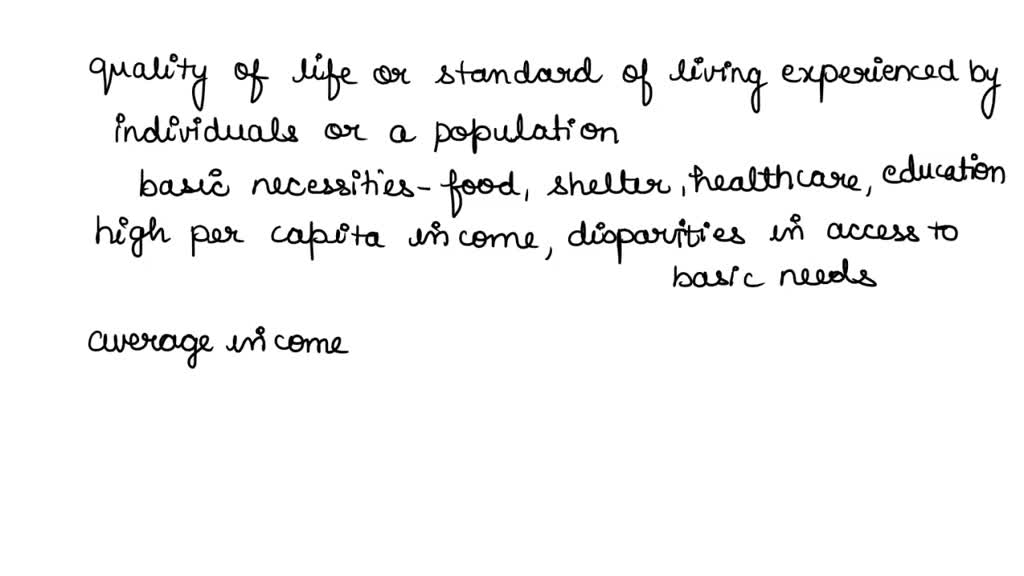 quality of life or standard of living experienced by
individuals or a population
basic necessities - food, shelter, healthcare, education
high per capita income, disparities in access to
basic needs
average income